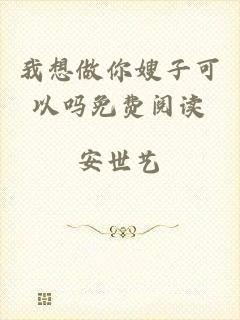 我想做你嫂子可
以吗免费阅读
安世艺